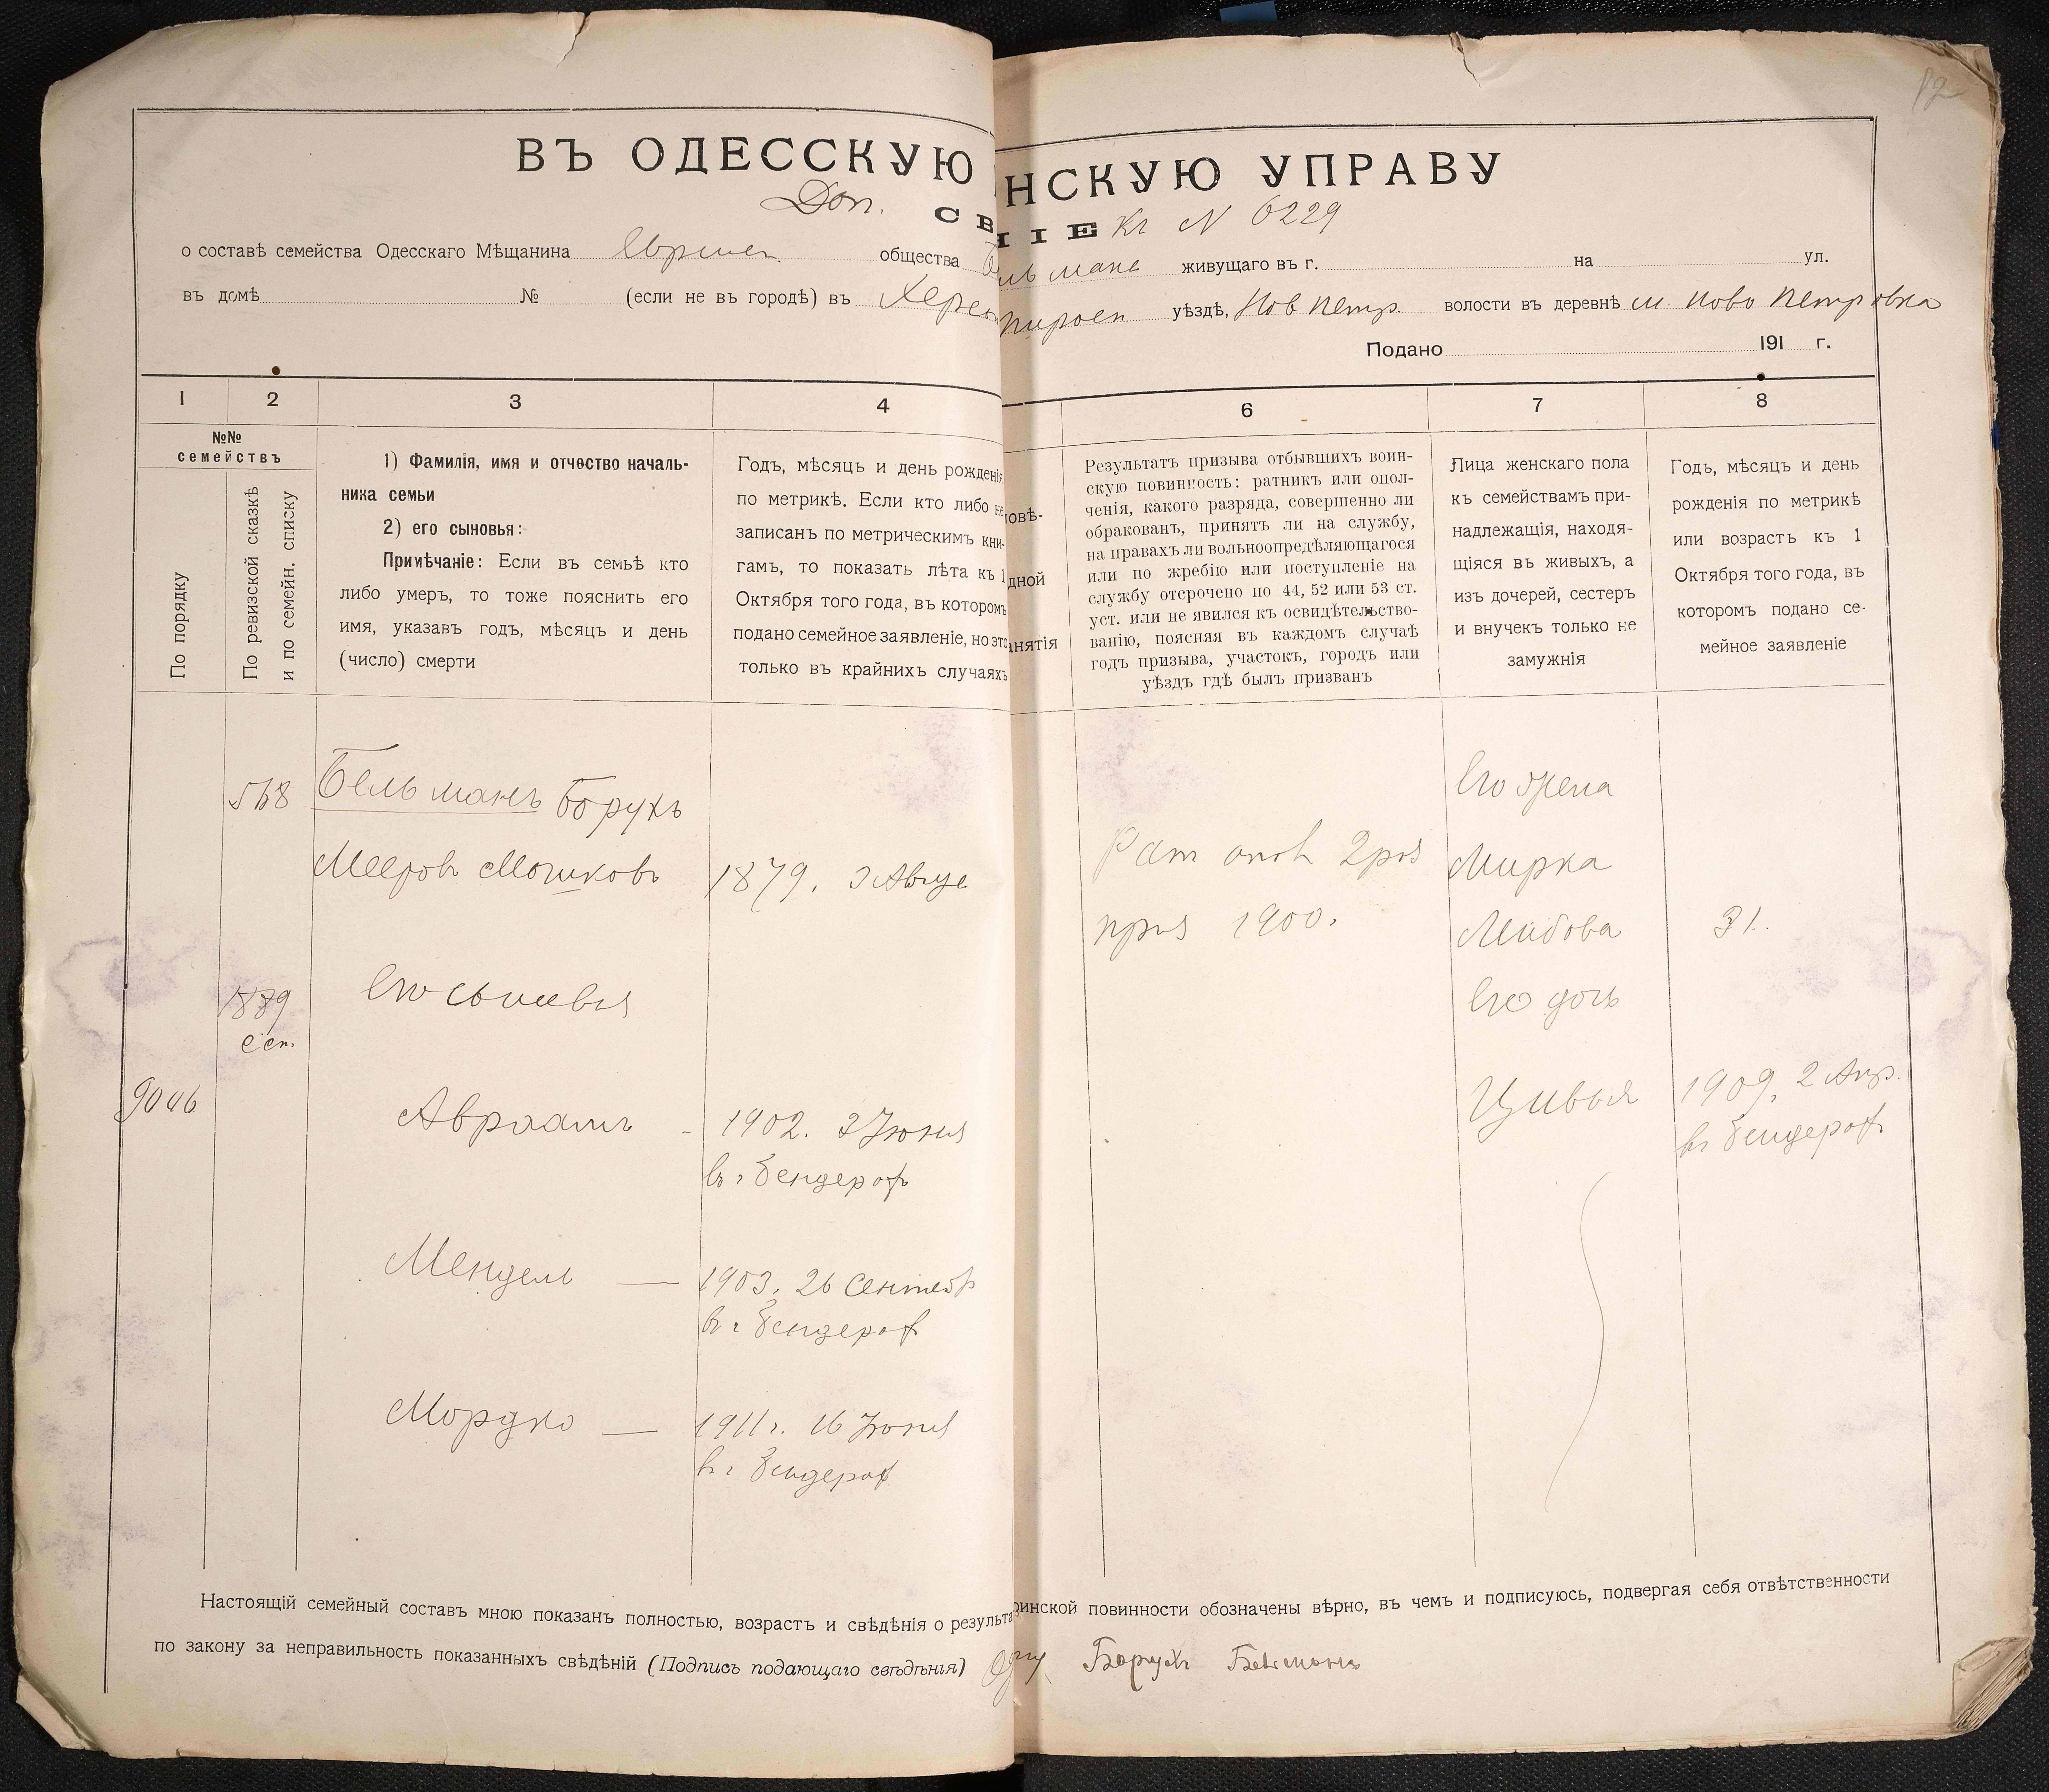 82
ВЪ ОДЕССКУЮ НСКУЮ УПРАВУ
Доп. СВ НІЕ Къ N 6229
о составѣ семейства Одесскаго Мѣщанина Еврейск. общества Бельмана живущаго въ г. на ул.
въ домѣ № (если не въ городѣ) въ Херсон уѣздѣ, Нов Петр. волости въ деревнѣ м. Ново Петровка
Подано 191 г.
1 2 3 4 6 7 8
№№
семействъ
По порядку
По ревизской сказкѣ
и по семейн. списку
1) Фамилія, имя и отчество началь-
ника семьи
2) его сыновья:
Примѣчаніе: Если въ семьѣ кто
либо умеръ, то тоже пояснить его
имя, указавъ годъ, мѣсяцъ и день
(число) смерти
Годъ, мѣсяцъ и день рожденія
по метрикѣ. Если кто либо не
записанъ по метрическимъ кни-
гамъ, то показать лѣта къ 1
Октября того года, въ которомъ
подано семейное заявленіе, но это
только въ крайнихъ случаяхъ
овѣ-
дной
анятія
Результатъ призыва отбывшихъ воин-
скую повинность: ратникъ или опол-
ченія, какого разряда, совершенно ли
обракованъ, принятъ ли на службу,
на правахъ ли вольноопредѣляющагося
или по жребію или поступленіе на
службу отсрочено по 44, 52 или 53 ст.
уст. или не явился къ освидѣтельство-
ванію, поясняя въ каждомъ случаѣ
годъ призыва, участокъ, городъ или
уѣздъ гдѣ былъ призванъ
Лица женскаго пола
къ семействамъ при-
надлежащія, находя-
щіяся въ живыхъ, а
изъ дочерей, сестеръ
и внучекъ только не
замужнія
Годъ, мѣсяцъ и день
рожденія по метрикѣ
или возрастъ къ 1
Октября того года, въ
которомъ подано се-
мейное заявленіе
568 Бельманъ Борухъ
Мееровъ Мошковъ 1879. 3 Авгус
Рат опол 2 раз
приз 1900.
Его жена
Мирка
Лейбова 31.
Его дочь
Цивья 1909. 2 Апр.
въ Бендерах
1889
Сен.
9046
Его сыновья
Авраамъ - 1902. 2 Іюня
въ г Бендерах
Мендель — 1903. 26 Сентябр
в г Бендерах
Мордко — 1911 г. 16 Іюня
в г Бендерах
Настоящій семейный составъ мною показанъ полностью, возрастъ и свѣдѣнія о результа инской повинности обозначены вѣрно, въ чемъ и подписуюсь, подвергая себя отвѣтственности
по закону за неправильность показанныхъ свѣдѣній (Подпись подающаго свѣдѣнія) Борухъ Бельманъ